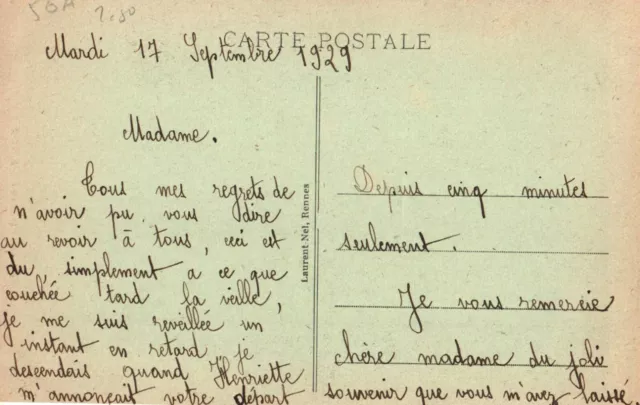 50A 2.50
CARTE POSTALE
Mardi 17 Septembre 1929
Madame.
Tous mes regrets de
n'avoir pu vous dire
au revoir à tous, ceci est
du, simplement a ce que
couchée tard la veille,
je me suis reveillée un
instant en retard, je
descendais quand Henriette
m'annonçait votre départ
Laurent Nel, Rennes
Depuis cinq minutes
seulement.
Je vous remercie
chère madame du joli
souvenir que vous m'avez laissé,